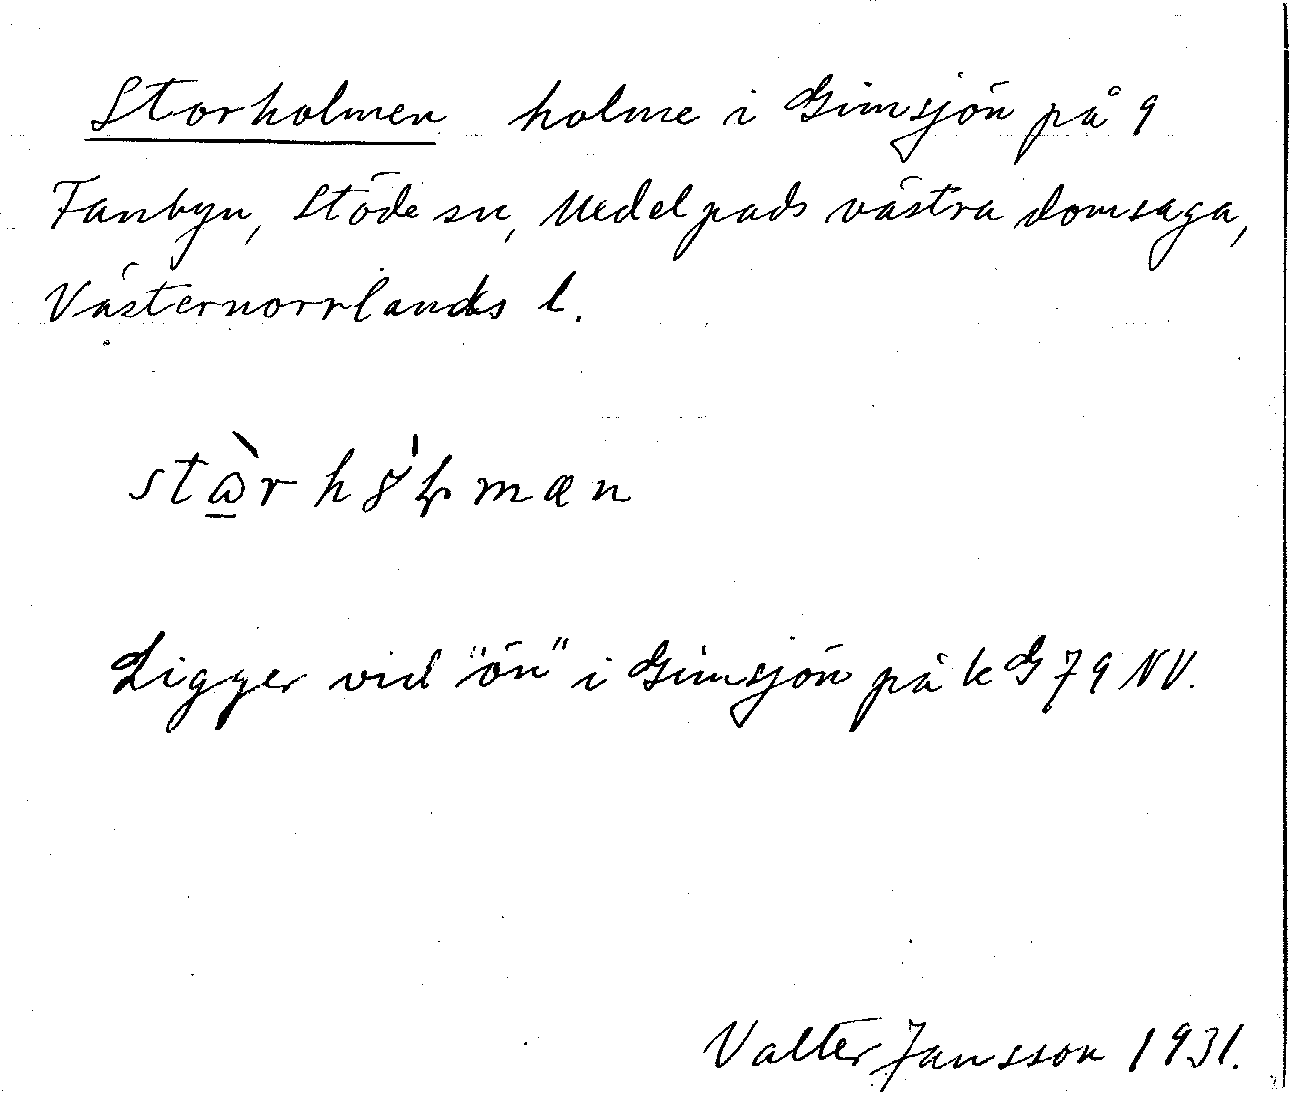 Storholmen holme i Gimsjön på 9
Fanbyn, Stöde sn, Medelpads västra domsaga,
Västernorrlands l.
Ligger vid "ön" i Gimsjön på k G 79 NV.
Valter Jansson 1931.